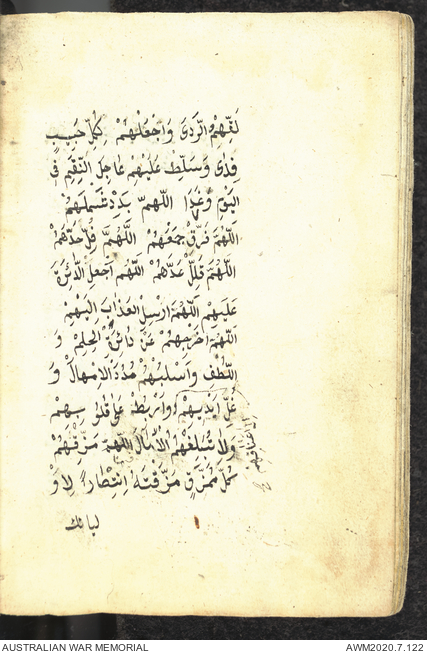 لَقِّهِمُ الرَّدَى وَاجْعَلْهُمْ لِكُلِّ حَبِيبٍ
فِدًى وَسَلِّطْ عَلَيْهِمْ عَاجِلَ النِّقَمِ فِي
الْيَوْمِ وَغَدًا اللَّهُمَّ بَدِّدْ شَمْلَهُمْ
اللَّهُمَّ فَرِّقْ جَمْعَهُمْ اللَّهُمَّ فُلَّ حَدَّهُمْ
اللَّهُمَّ قَلِّلْ عَدَّهُمْ اللَّهُمَّ اجْعَلِ الدَّائِرَةَ
عَلَيْهِمْ اللَّهُمَّ ارْسِلِ الْعَذَابَ إِلَيْهِمْ
اللَّهُمَّ اخْرِجْهُمْ عَنْ دَائِرَةِ الْحِلْمِ وَ
اللُّطْفِ وَاسْلُبْهُمْ مُدَدَ الْإِمْهَالِ وَ
غُلَّ أَيْدِيَهُمْ وَارْبِطْ عَلَى قُلُوبِهِمْ
وَلَا تُبَلِّغْهُمُ الْآمَالَ اللَّهُمَّ مَزِّقْهُمْ
كُلَّ مُمَزَّقٍ مَزَّقْتَهُ انْتِصَارًا لِأَوْ
ليائك
AUSTRALIAN WAR MEMORIAL
AWM2020.7.122